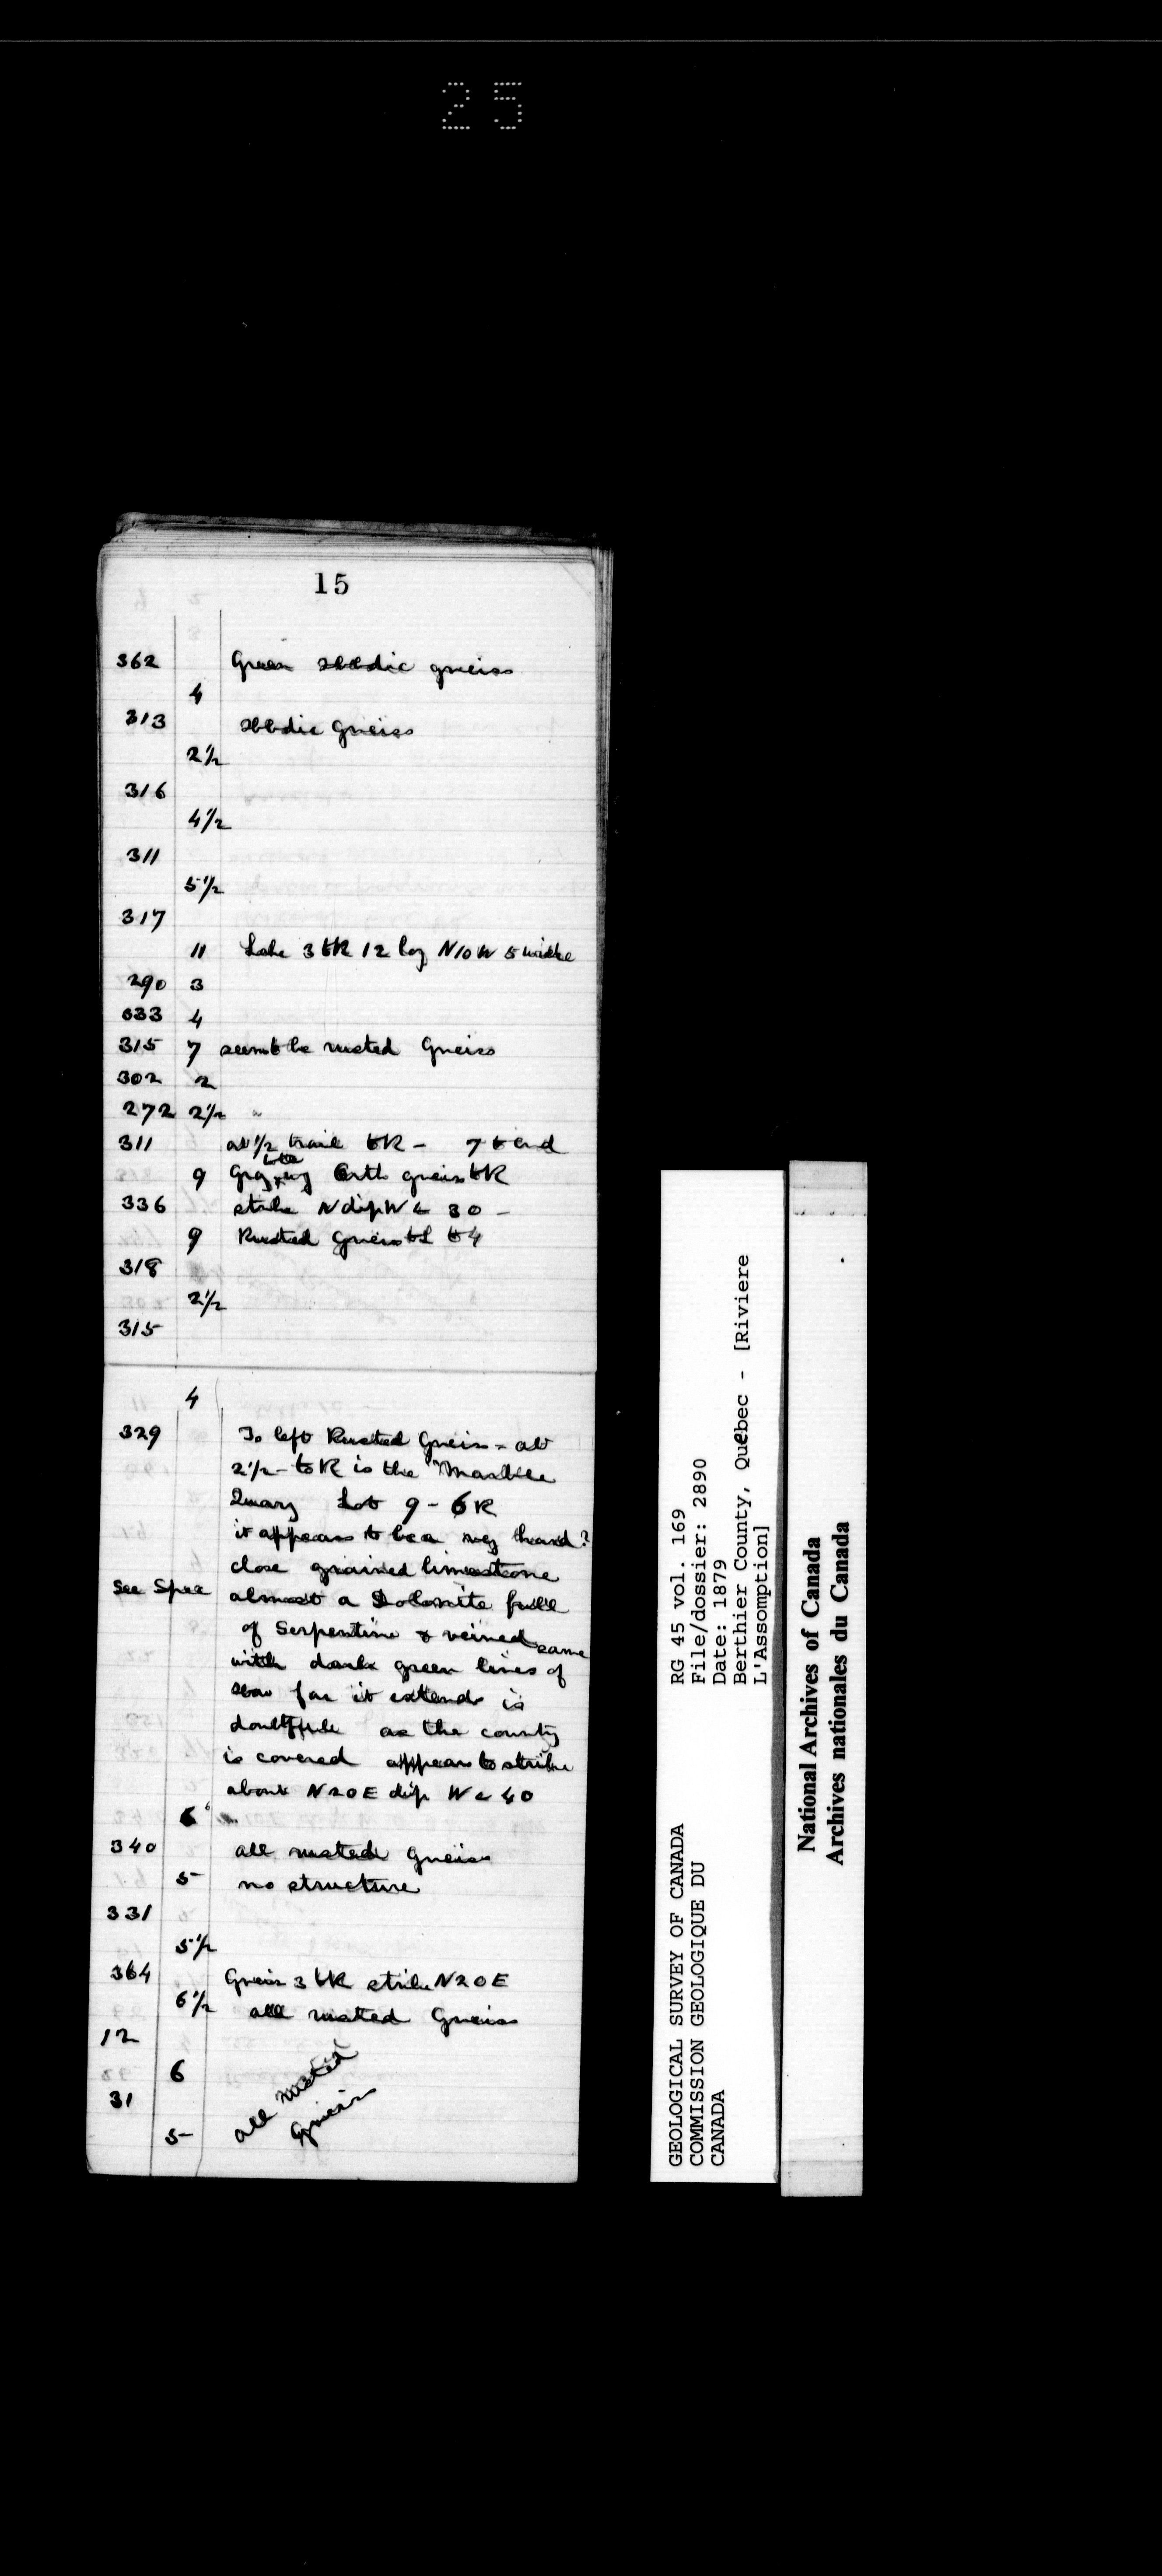 25
15
362 Green albdic gneiss
4
313 albdic Gneiss
2½
316
4½
311
5½
317
11 Lake 3 tR 12 log N10W 5 wide
290 3
033 4
315 7 seems to be rusted Gneiss
302 2
272 2½ "
311 at ½ trail tR - 7 to end
9 Gray Orth gneiss tR
336 strike N dip W < 30 -
9 Rusted Gneiss tL to 4
318
2½
315
4
329 To left Rusted Gneiss - at
2½ - to R is the "Marble
Quary Lot 9 - 6 R
it appears to be a very hard?
close grained limestone
See Spec almost a Dolomite full
of Serpentine & veined
with dark green lines of same
How far it extends is
doubtfule as the county
is covered appears to strike
about N20E dip W < 40
6
340 all rusted Gneiss
5 no structure
331
5½
364 Gneiss 3 tR strike N20E
6½ all rusted Gneiss
12
6
31 all rusted
5 Gneiss
GEOLOGICAL SURVEY OF CANADA
COMMISSION GEOLOGIQUE DU
CANADA
RG 45 vol. 169
File/dossier: 2890
Date: 1879
Berthier County, Québec - [Riviere
L'Assomption]
National Archives of Canada
Archives nationales du Canada